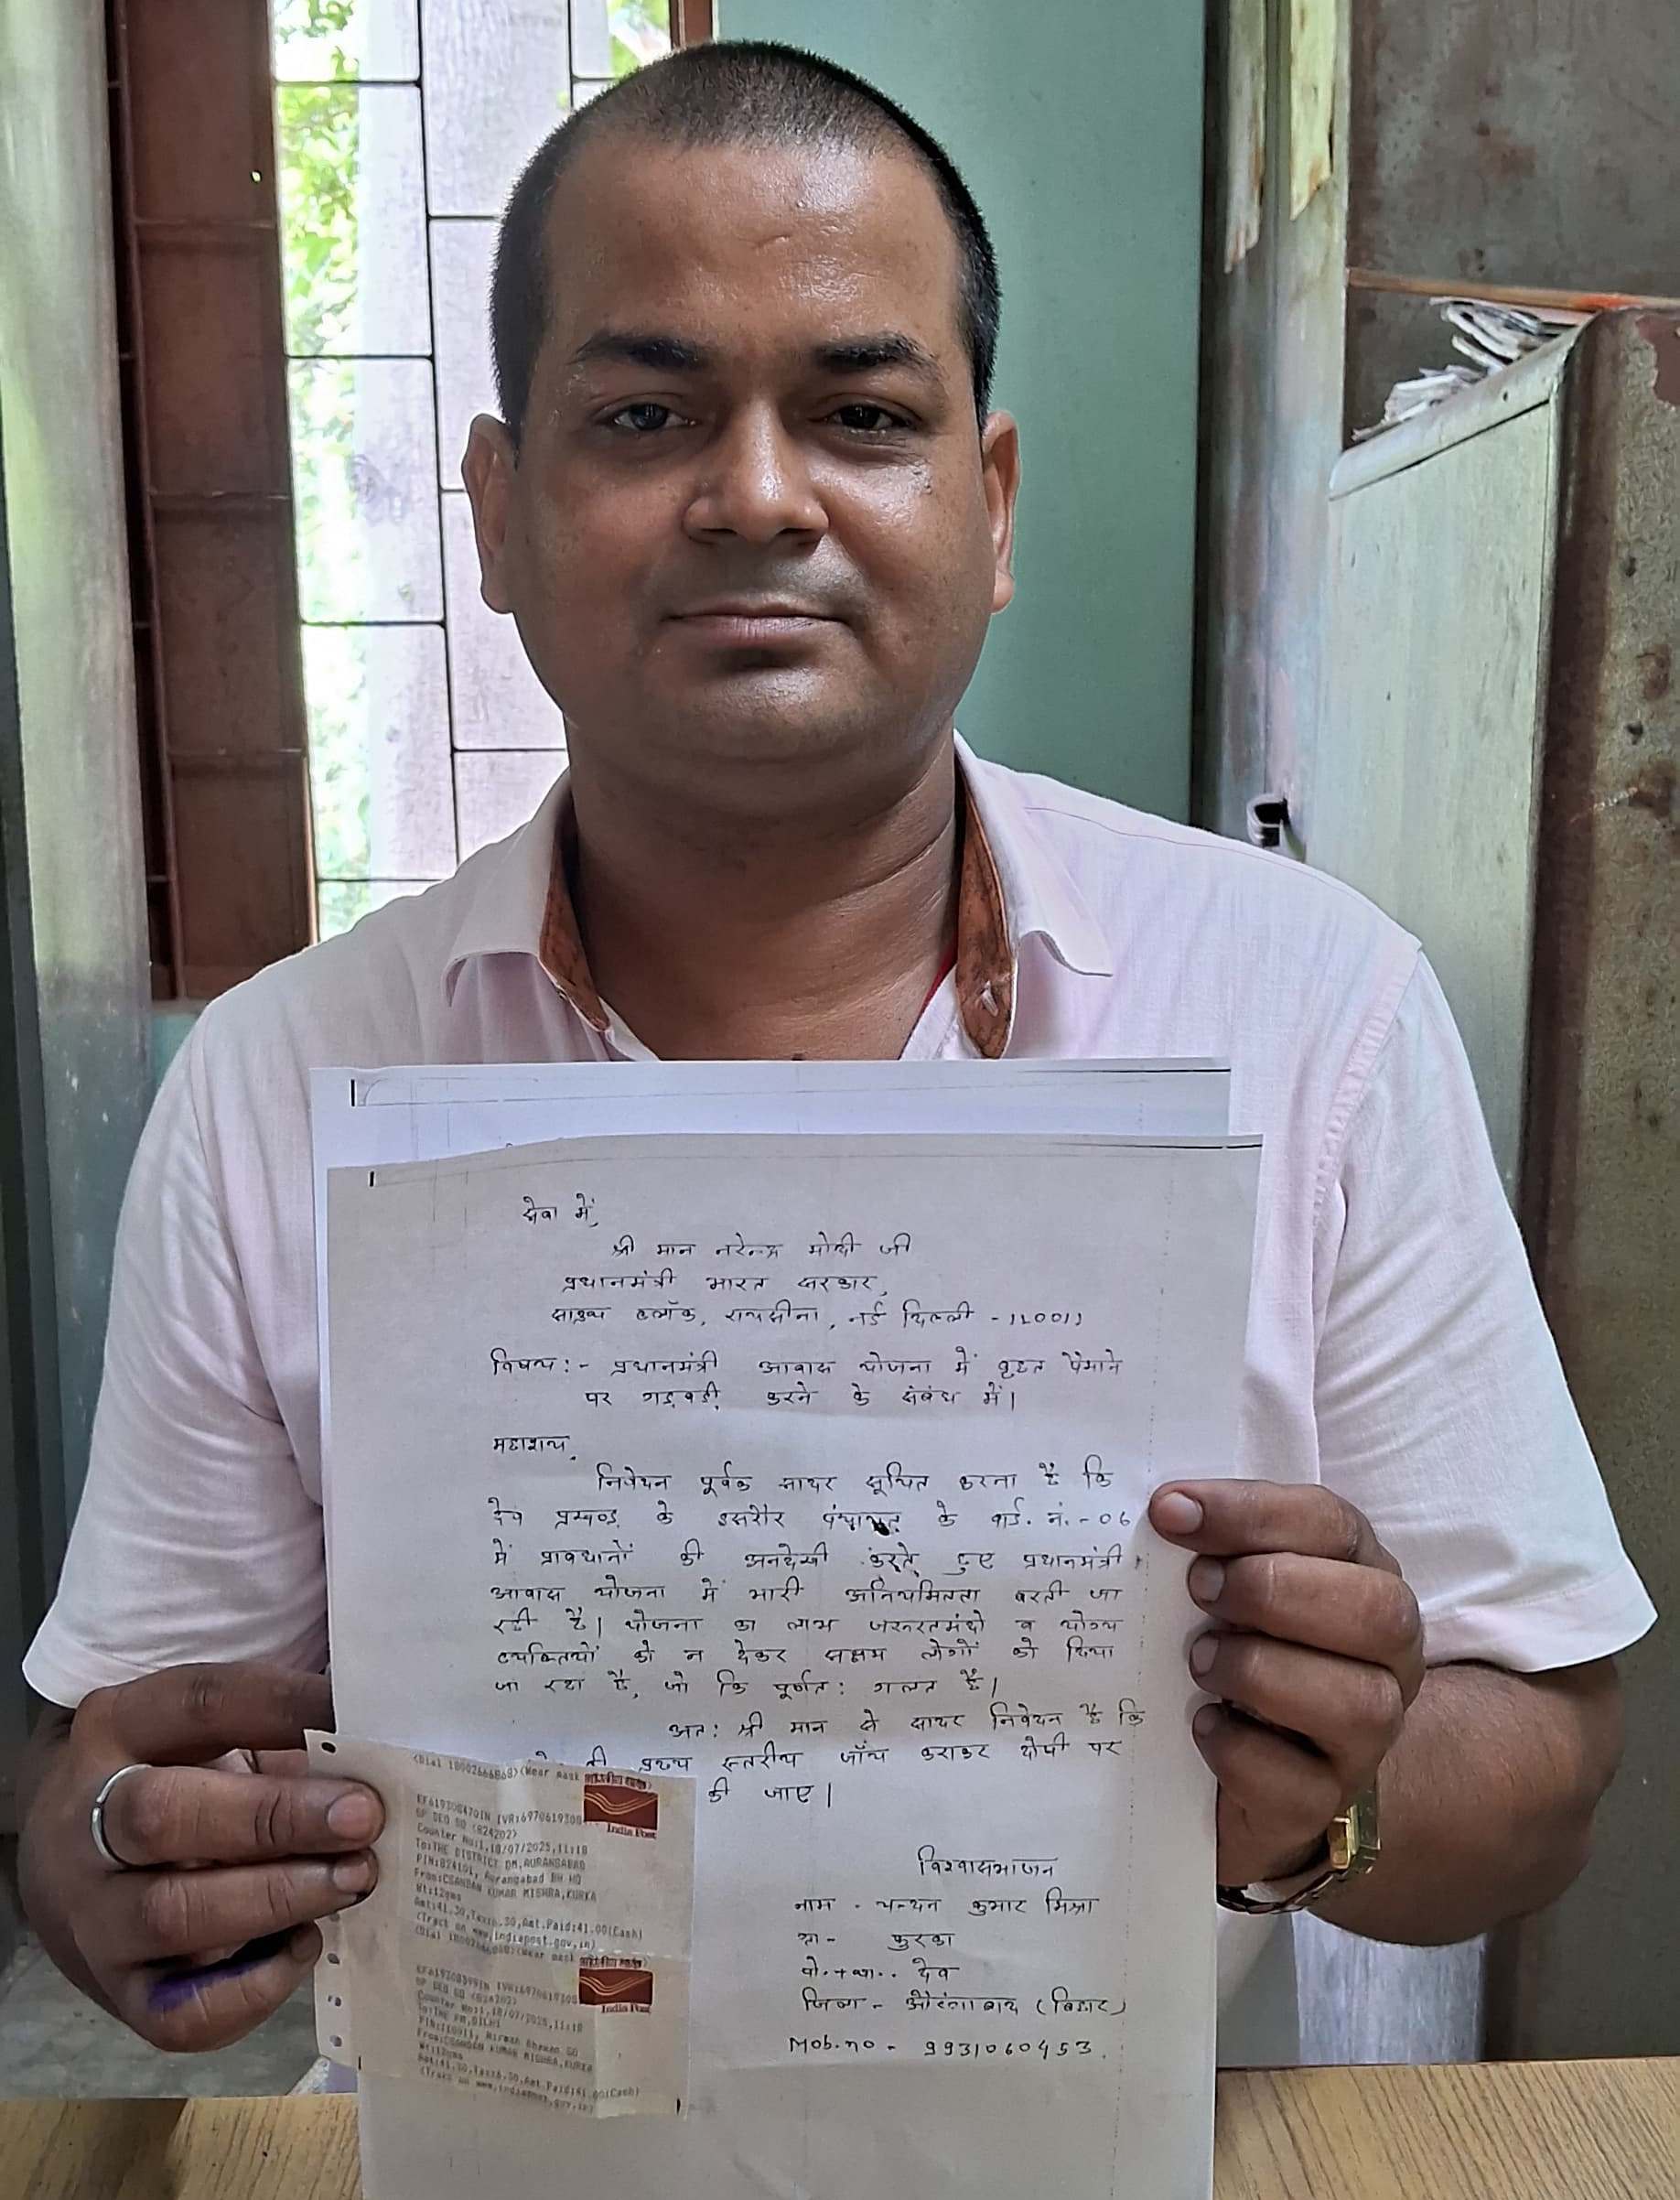 सेवा में,
श्री मान नरेन्द्र मोदी जी
प्रधानमंत्री भारत सरकार,
साउथ ब्लॉक, रायसीना, नई दिल्ली - 110011
विषय:- प्रधानमंत्री आवास योजना में वृहत पैमाने
पर गड़बड़ी करने के संबंध में।
महाशय,
निवेदन पूर्वक सादर सूचित करना है कि
देव प्रखण्ड के इसरौर पंचायत के वार्ड. नं.-06
में प्रावधानों की अनदेखी करते हुए प्रधानमंत्री
आवास योजना में भारी अनियमितता बरती जा
रही है। योजना का लाभ जरूरतमंदो व योग्य
व्यक्तियों को न देकर सक्षम लोगों को दिया
जा रहा है, जो कि पूर्णत: गलत है।
अत: श्री मान से सादर निवेदन है कि
स्तरीय जाँच कराकर दोषी पर
की जाए।
विश्वासभाजन
नाम - चन्दन कुमार मिश्रा
ग्रा - कुरका
पो.+था.. देव
जिला - औरंगाबाद (बिहार)
Mob.no - 9931060453.
(Dial 18002666868)(Wear mask
India Post
EF619308470IN IVR:6970619308
SP DEO SO (824202)
Counter No:1,18/07/2025,11:18
To:THE DISTRICT DM,AURANGABAD
PIN:824101, Aurangabad BH HO
From:CHANDAN KUMAR MISHRA,KURKA
Wt:12gms
Amt:41.30,Tax:6.30,Amt.Paid:41.00(Cash)
(Track on www.indiapost.gov.in)
(Dial 18002666868)(Wear mask
India Post
SP DEO SO (824202)
Counter No:1,18/07/2025,11:18
To:THE PM,DELHI
PIN:110011, Nirman Bhawan SO
From:CHANDAN KUMAR MISHRA,KURKA
Wt:12gms
Amt:41.30,Tax:6.30,Amt.Paid:41.00(Cash)
(Track on www.indiapost.gov.in)